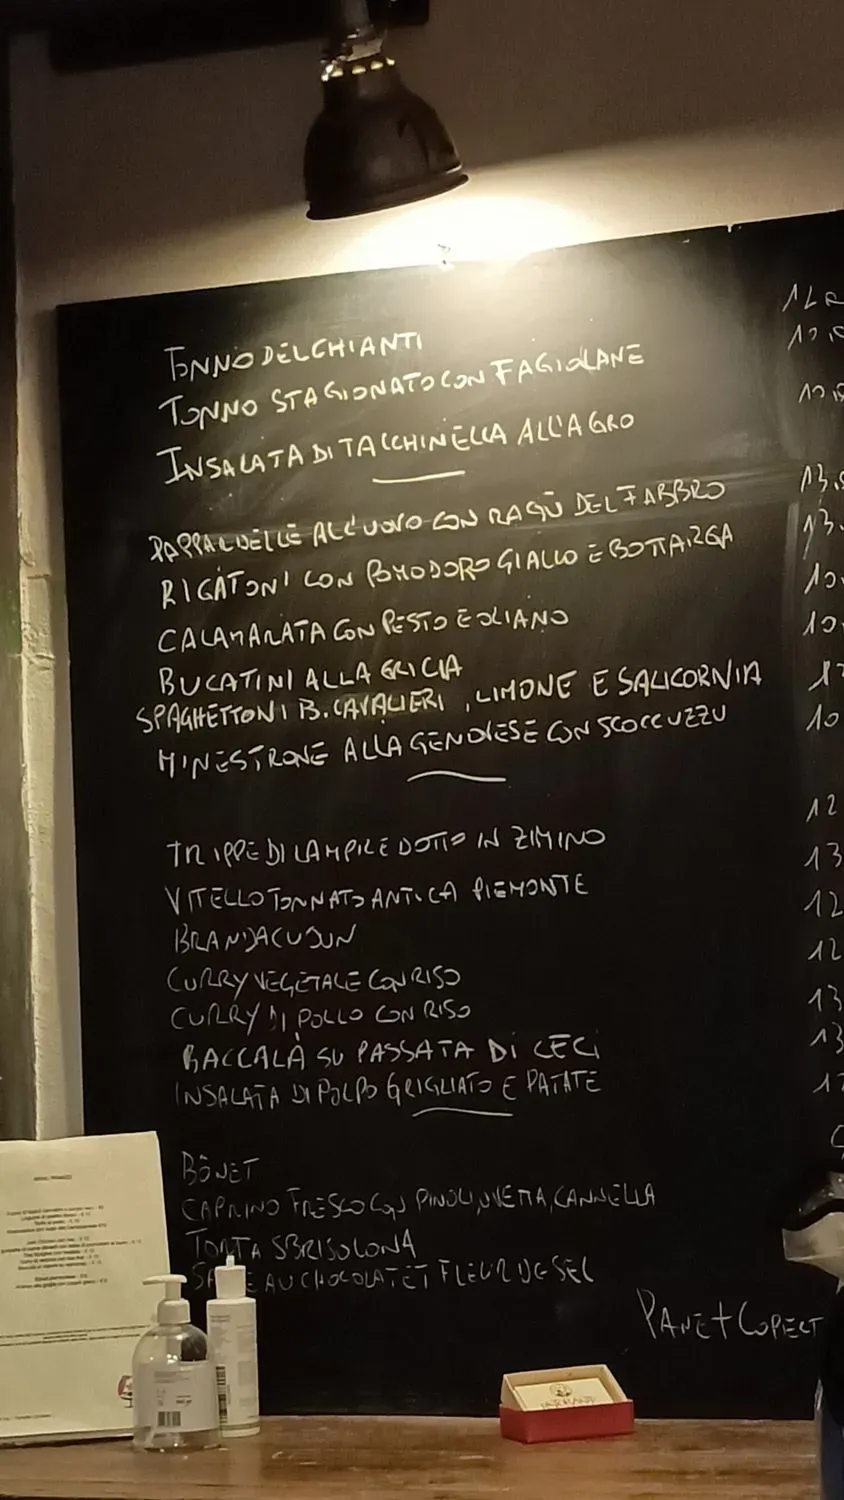 TONNO DEL CHIANTI
TONNO STAGIONATO CON FAGIOLANE
INSALATA DI TACCHINELLA ALL'AGRO
PAPPARDELLE ALL'UOVO CON RAGÙ DEL FABBRO 13
RIGATONI CON POMODORO GIALLO E BOTTARGA 13.
CALAMARATA CON PESTO EOLIANO 10
BUCATINI ALLA GRICIA 10
SPAGHETTONI B. CAVALIERI, LIMONE E SALICORNIA
MINESTRONE ALLA GENOVESE CON SCOCCUZZU 10
TRIPPE DI LAMPREDOTTO IN ZIMINO 12
VITELLO TONNATO ANTICA PIEMONTE 13
BRANDACUJUN 12
CURRY VEGETALE CON RISO 12
CURRY DI POLLO CON RISO 13
BACCALÀ SU PASSATA DI CECI 13
INSALATA DI POLPO GRIGLIATO E PATATE
BÔNET
CAPRINO FRESCO CON PINOLI, UVETTA, CANNELLA
TORTA SBRISOLONA
AU CHOCOLAT ET FLEUR DE SEL
PANE + COPERT